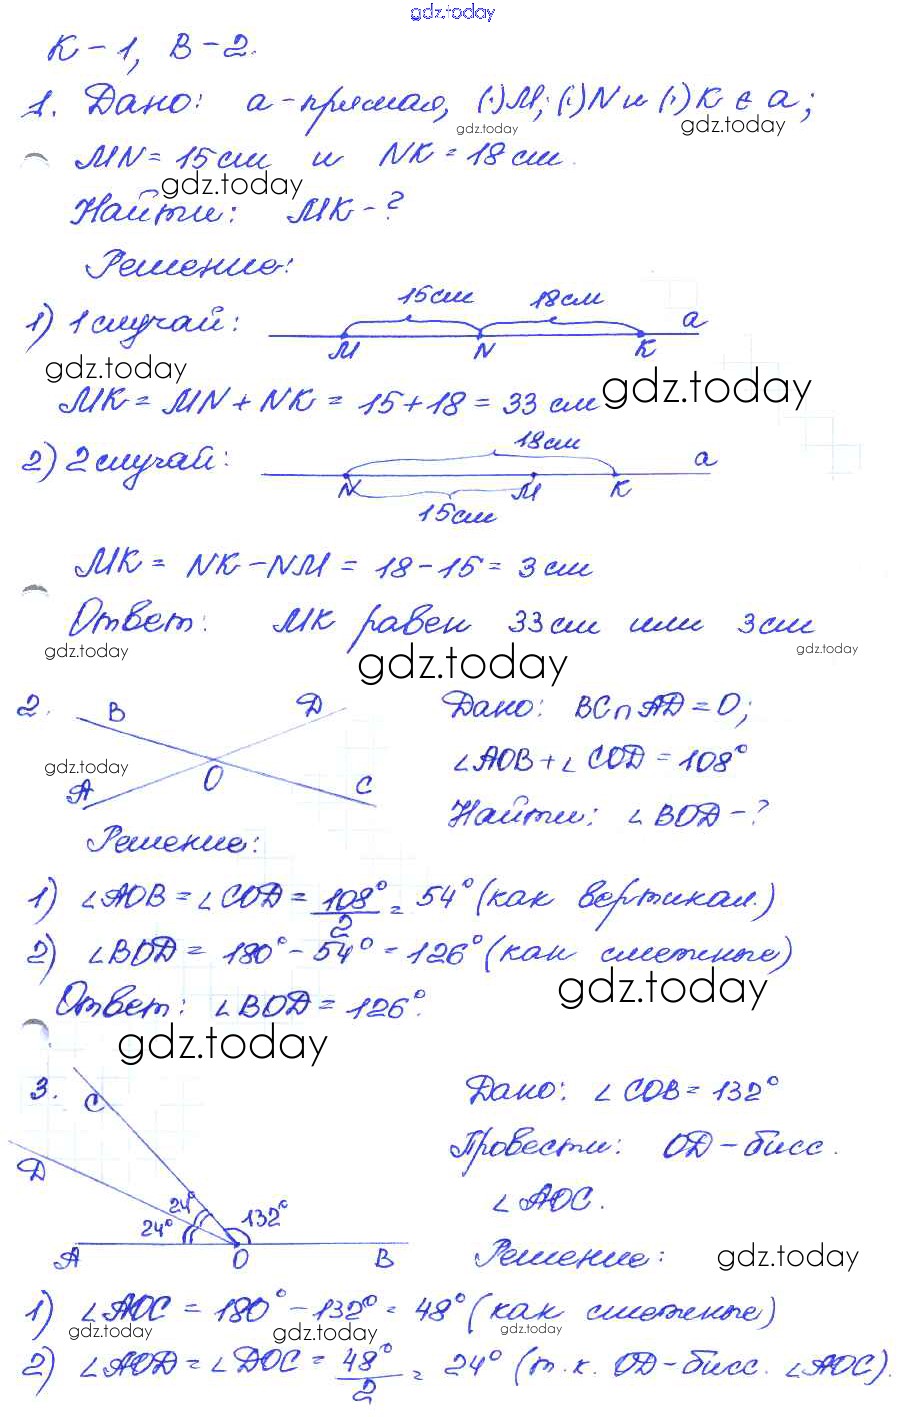 gdz.today
К-1, В-2.
1. Дано: a-прямая, (·)M; (·)N и (·)K ∈ a;
gdz.today gdz.today
MN = 15 см и NK = 18 см.
gdz.today
Найти: MK - ?
Решение:
1) 1 случай: 15 см 18 см a
M N K
gdz.today gdz.today
MK = MN + NK = 15 + 18 = 33 см
2) 2 случай: 18 см a
N M K
15 см
MK = NK - NM = 18 - 15 = 3 см
Ответ: MK равен 33 см или 3 см
gdz.today gdz.today gdz.today
2. B D Дано: BC ∩ AD = O;
gdz.today O ∠AOB + ∠COD = 108°
A C Найти: ∠BOD - ?
Решение:
1) ∠AOB = ∠COD = 108°/2 = 54° (как вертикал.)
2) ∠BOD = 180° - 54° = 126° (как смежные)
gdz.today
Ответ: ∠BOD = 126°.
gdz.today
3. C Дано: ∠COB = 132°
D Провести: OD - бисс.
24° 24° 132° ∠AOC.
A O B Решение: gdz.today
1) ∠AOC = 180° - 132° = 48° (как смежные)
gdz.today gdz.today gdz.today
2) ∠AOD = ∠DOC = 48°/2 = 24° (т.к. OD - бисс. ∠AOC).